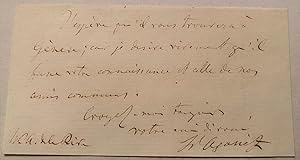 J'espère qu'il vous trouvera à
Genève, car je désire vivement qu'il
fasse votre connaissance et celle de nos
amis communs.
Croyez moi toujours
votre ami dévoué
Ls Agassiz